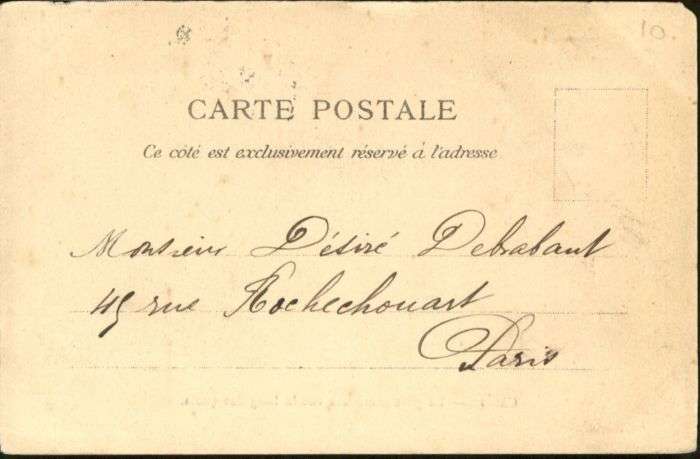 10.
CARTE POSTALE
Ce côté est exclusivement réservé à l'adresse
Monsieur Désiré Debrabant
45 rue Rochechouart
Paris